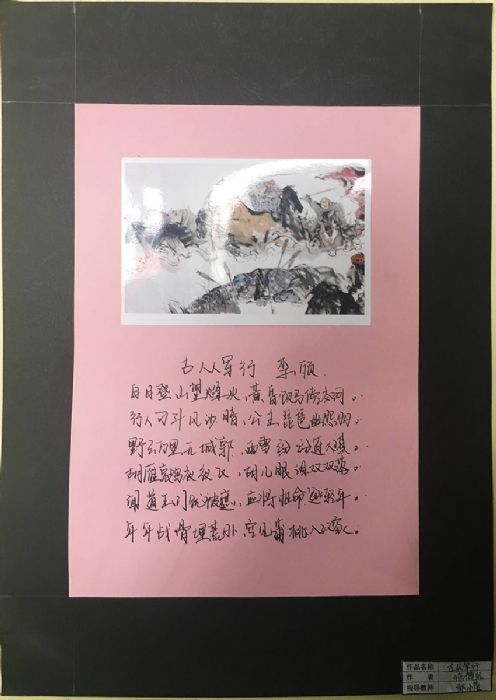 古从军行 李颀
白日登山望烽火,黄昏饮马傍交河。
行人刁斗风沙暗,公主琵琶幽怨多。
野云万里无城郭,雨雪纷纷连大漠。
胡雁哀鸣夜夜飞,胡儿眼泪双双落。
闻道玉门犹被遮,应将性命逐轻车。
年年战骨埋荒外,空见蒲桃入汉家。
作品名称 古从军行
作 者
指导教师